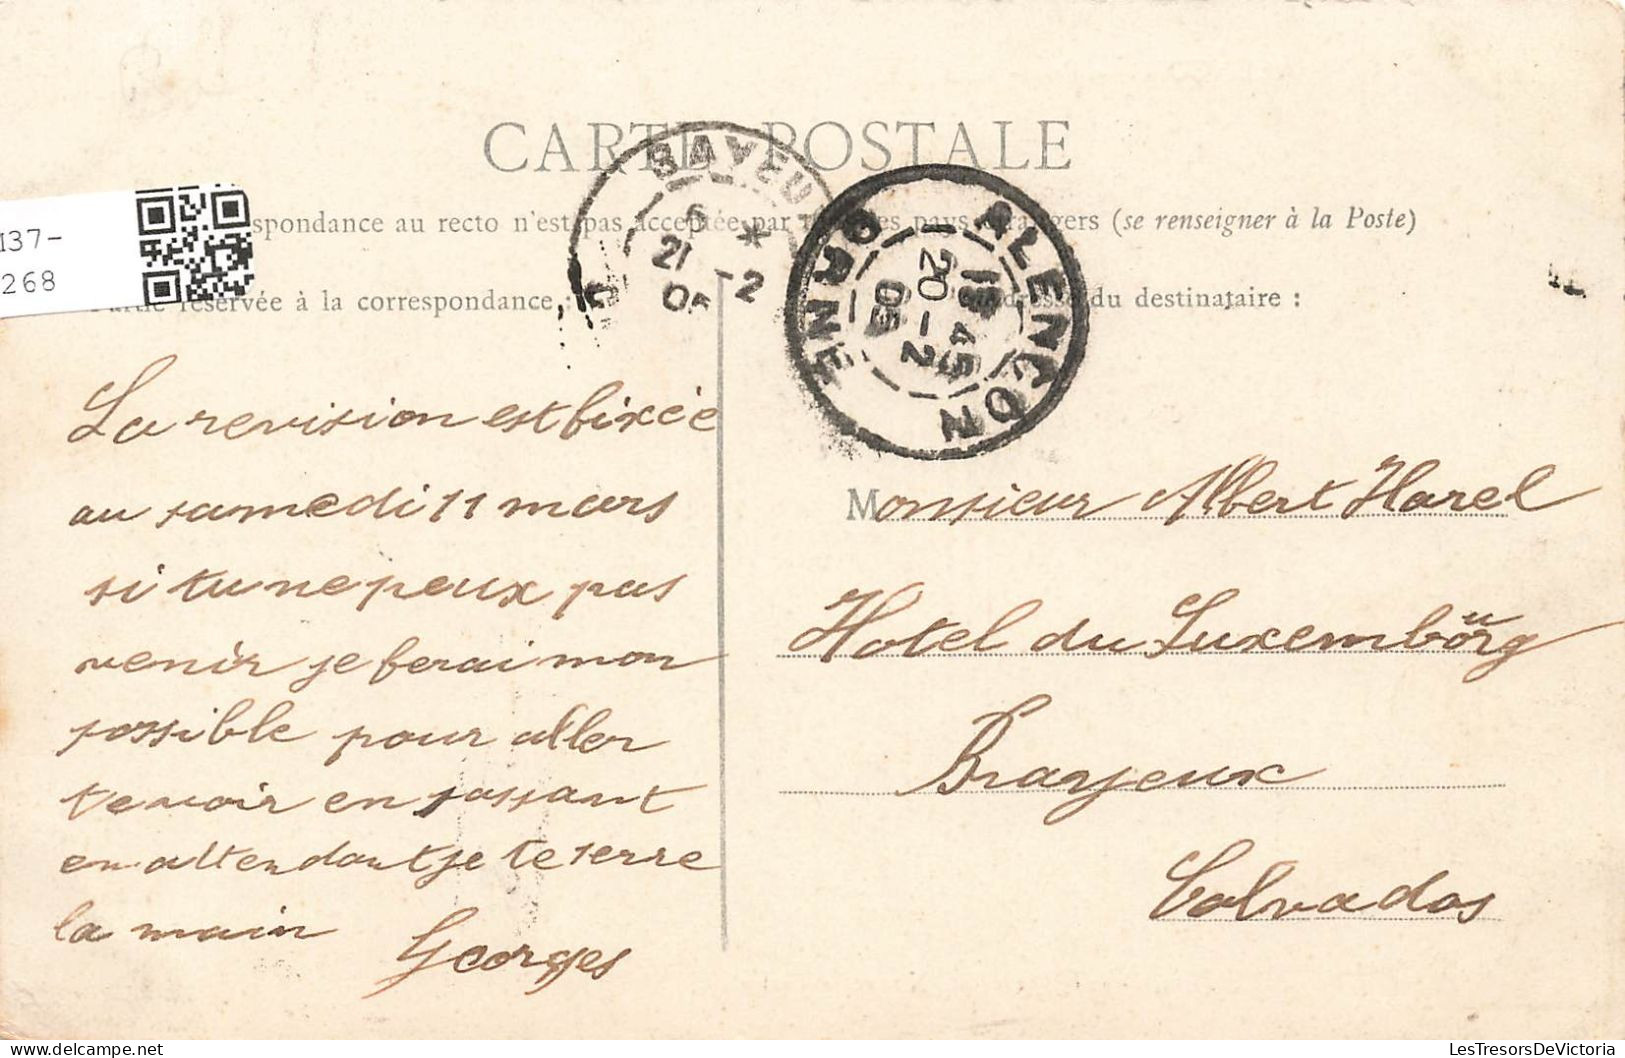 CARTE POSTALE
spondance au recto n'est pas acceptée par les pays étrangers (se renseigner à la Poste)
M37-
268
Partie réservée à la correspondance :
Adresse du destinataire :
BAYEUX
6 *
21 -2
05
ALENÇON
ORNE
18 45
20 -2
05
La revision est fixée
au samedi 11 mars
si tu ne peux pas
venir je ferai mon
possible pour aller
te voir en passant
en attendant je te serre
la main
Georges
Monsieur Albert Harel
Hotel du Luxembourg
Brayeux
Calvados
LesTresorsDeVictoria